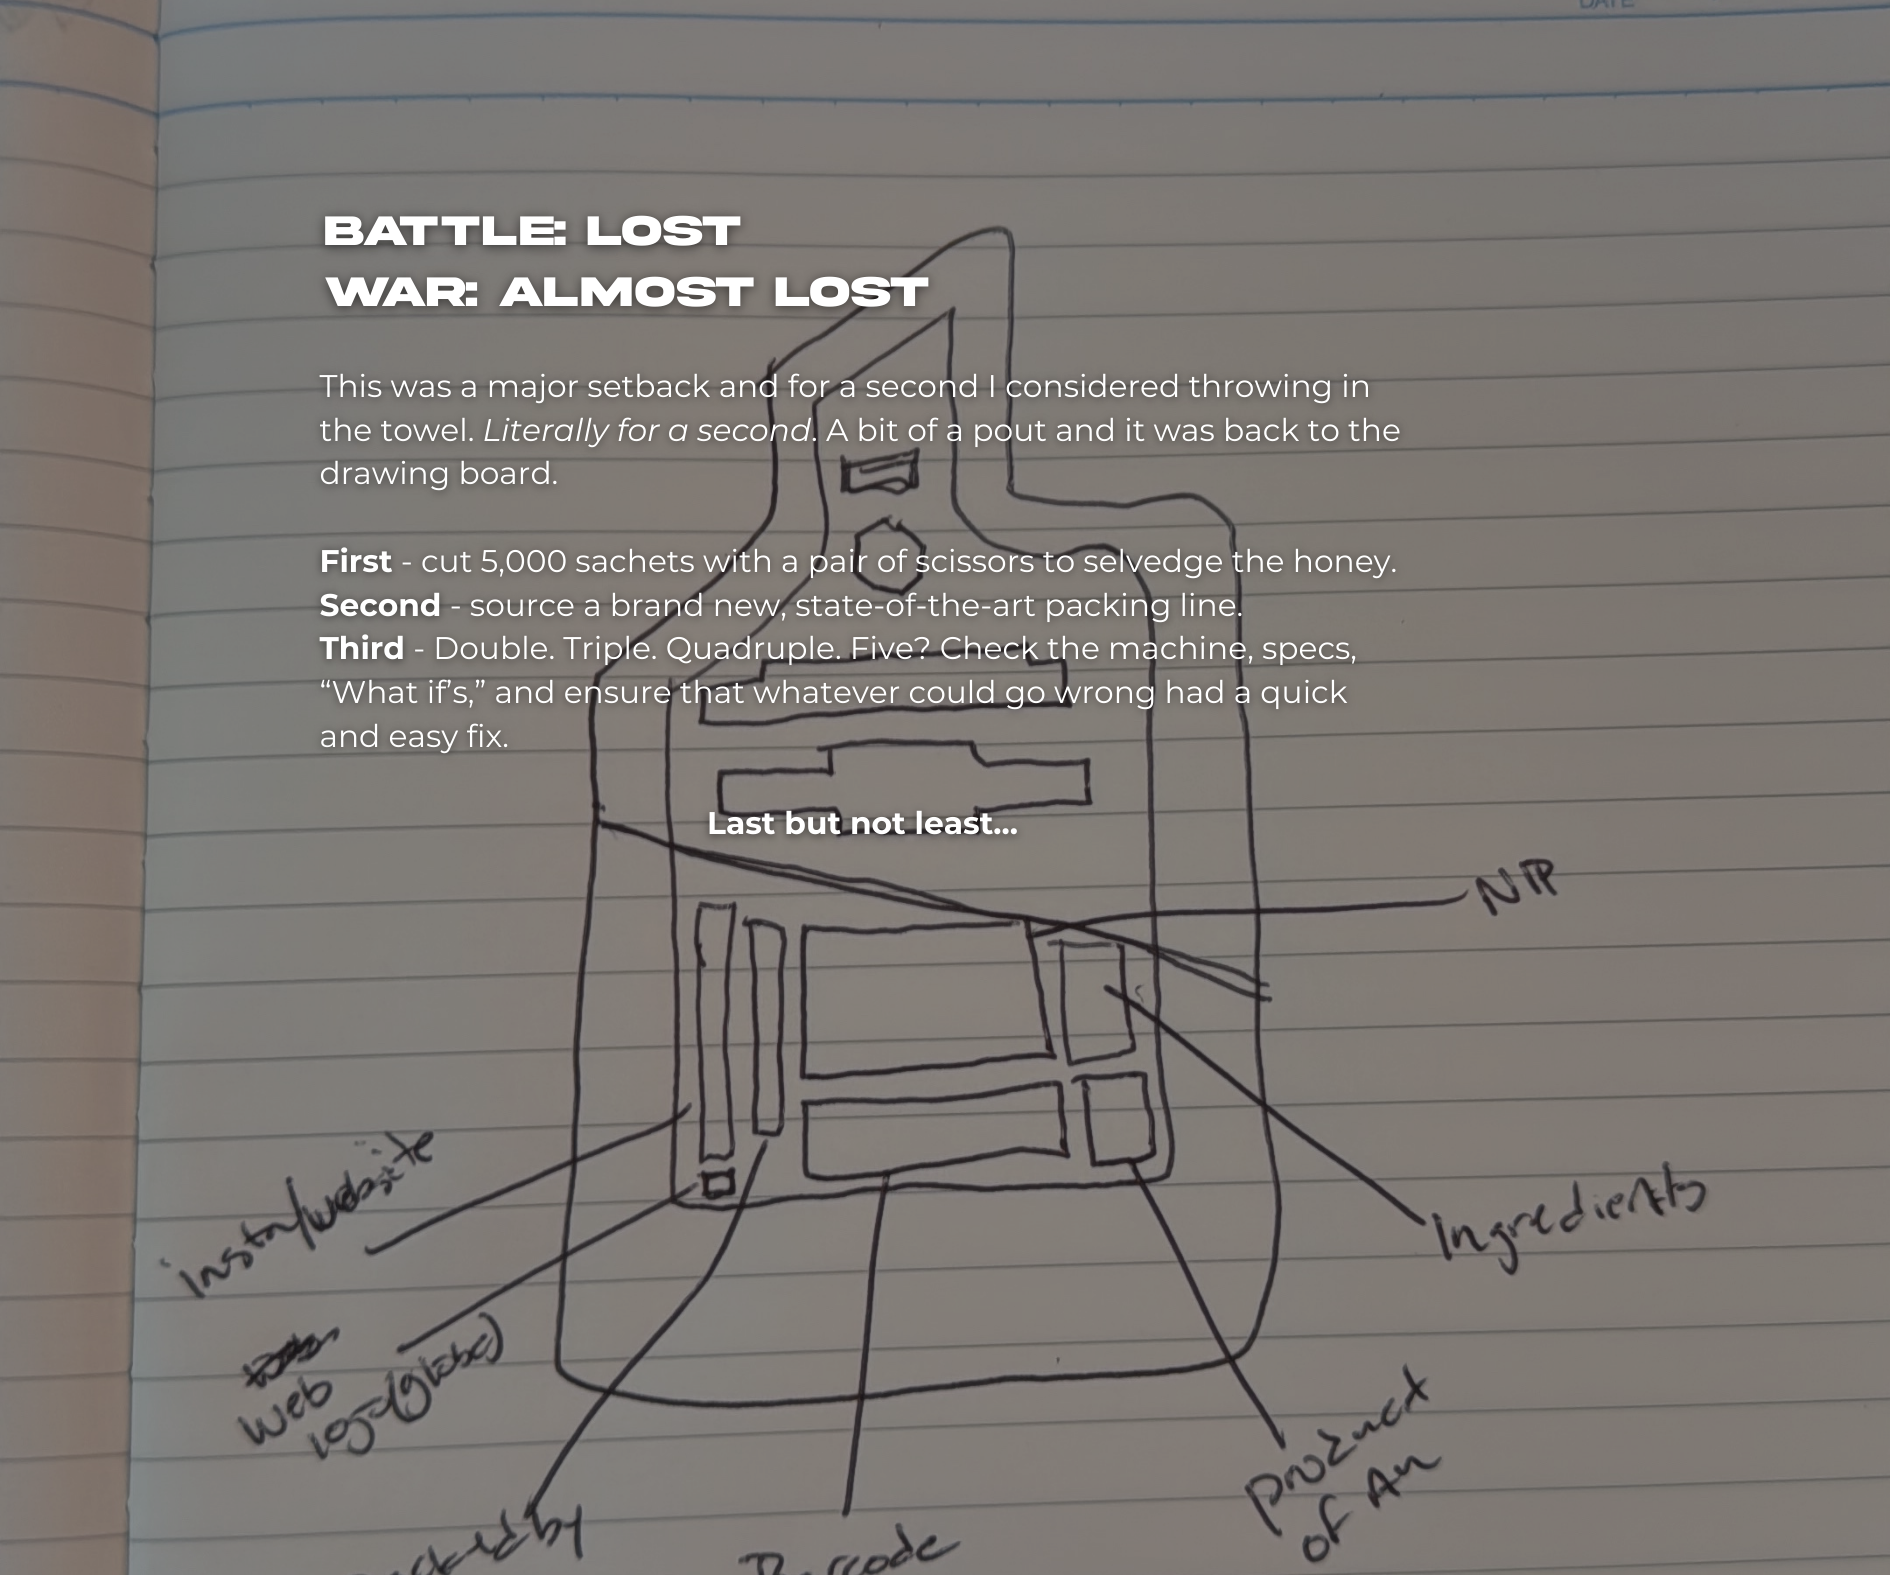 DATE
BATTLE: LOST
WAR: ALMOST LOST
This was a major setback and for a second I considered throwing in
the towel. Literally for a second. A bit of a pout and it was back to the
drawing board.
First - cut 5,000 sachets with a pair of scissors to selvedge the honey.
Second - source a brand new, state-of-the-art packing line.
Third - Double. Triple. Quadruple. Five? Check the machine, specs,
“What if’s,” and ensure that whatever could go wrong had a quick
and easy fix.
Last but not least...
NIP
insta/website
Ingredients
web
logo (globe)
product
of Au
by
Barcode